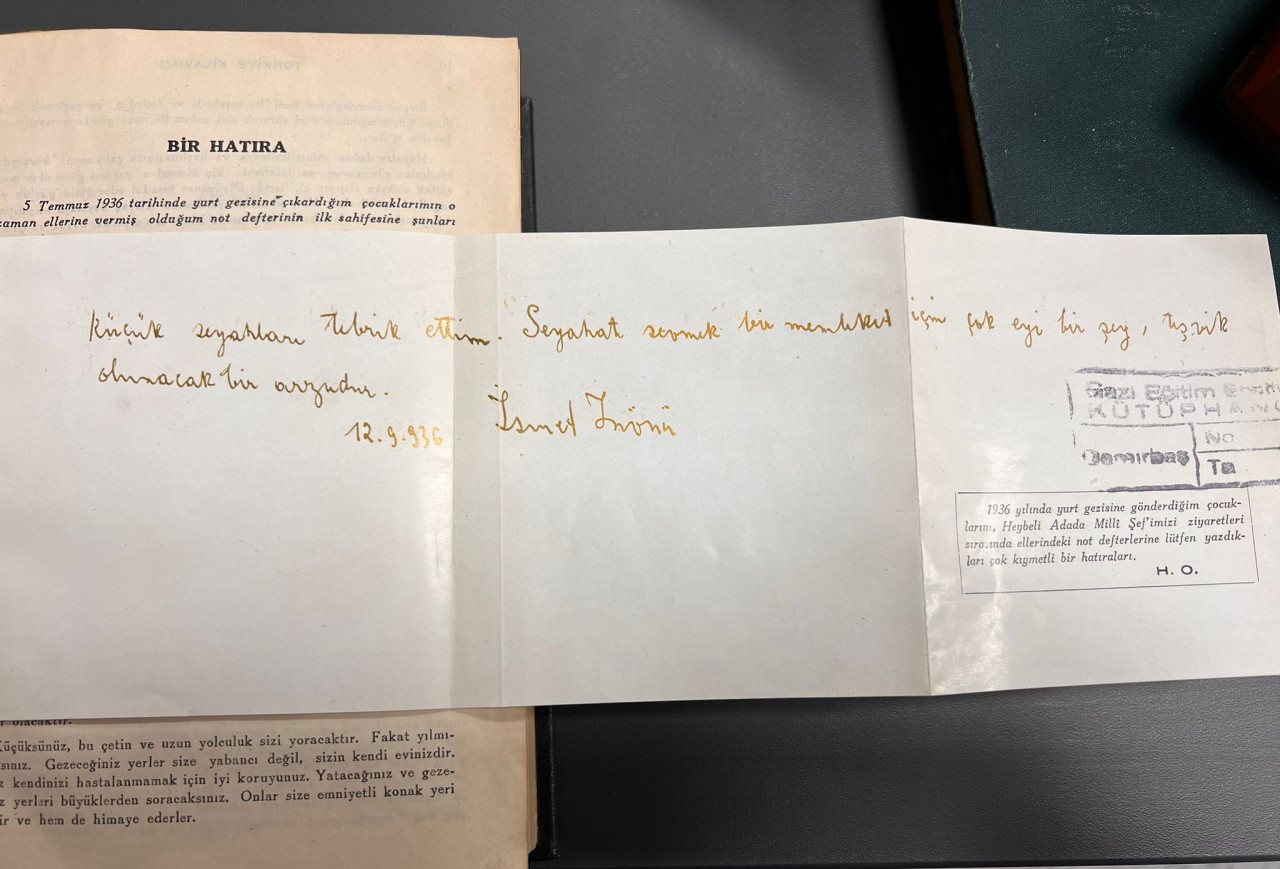 BİR HATIRA
5 Temmuz 1936 tarihinde yurt gezisine çıkardığım çocuklarımın o
zaman ellerine vermiş olduğum not defterinin ilk sahifesine şunları
Küçük seyahları tebrik ettim. Seyahat sevmek bir memleket için çok eyi bir şey, teşvik
olunacak bir arzudur.
12.9.936 İsmet İnönü
Gazi Eğitim
KÜTÜPHAN
Demirbaş
No
Ta
1936 yılında yurt gezisine gönderdiğim çocuk-
larım, Heybeli Adada Millî Şef'imizi ziyaretleri
sırasında ellerindeki not defterlerine lütfen yazdık-
ları çok kıymetli bir hatıraları.
H. O.
r olacaktır.
Küçüksünüz, bu çetin ve uzun yolculuk sizi yoracaktır. Fakat yılmı-
sınız. Gezeceğiniz yerler size yabancı değil, sizin kendi evinizdir.
z kendinizi hastalanmamak için iyi koruyunuz. Yatacağınız ve geze-
z yerleri büyüklerden soracaksınız. Onlar size emniyetli konak yeri
ir ve hem de himaye ederler.